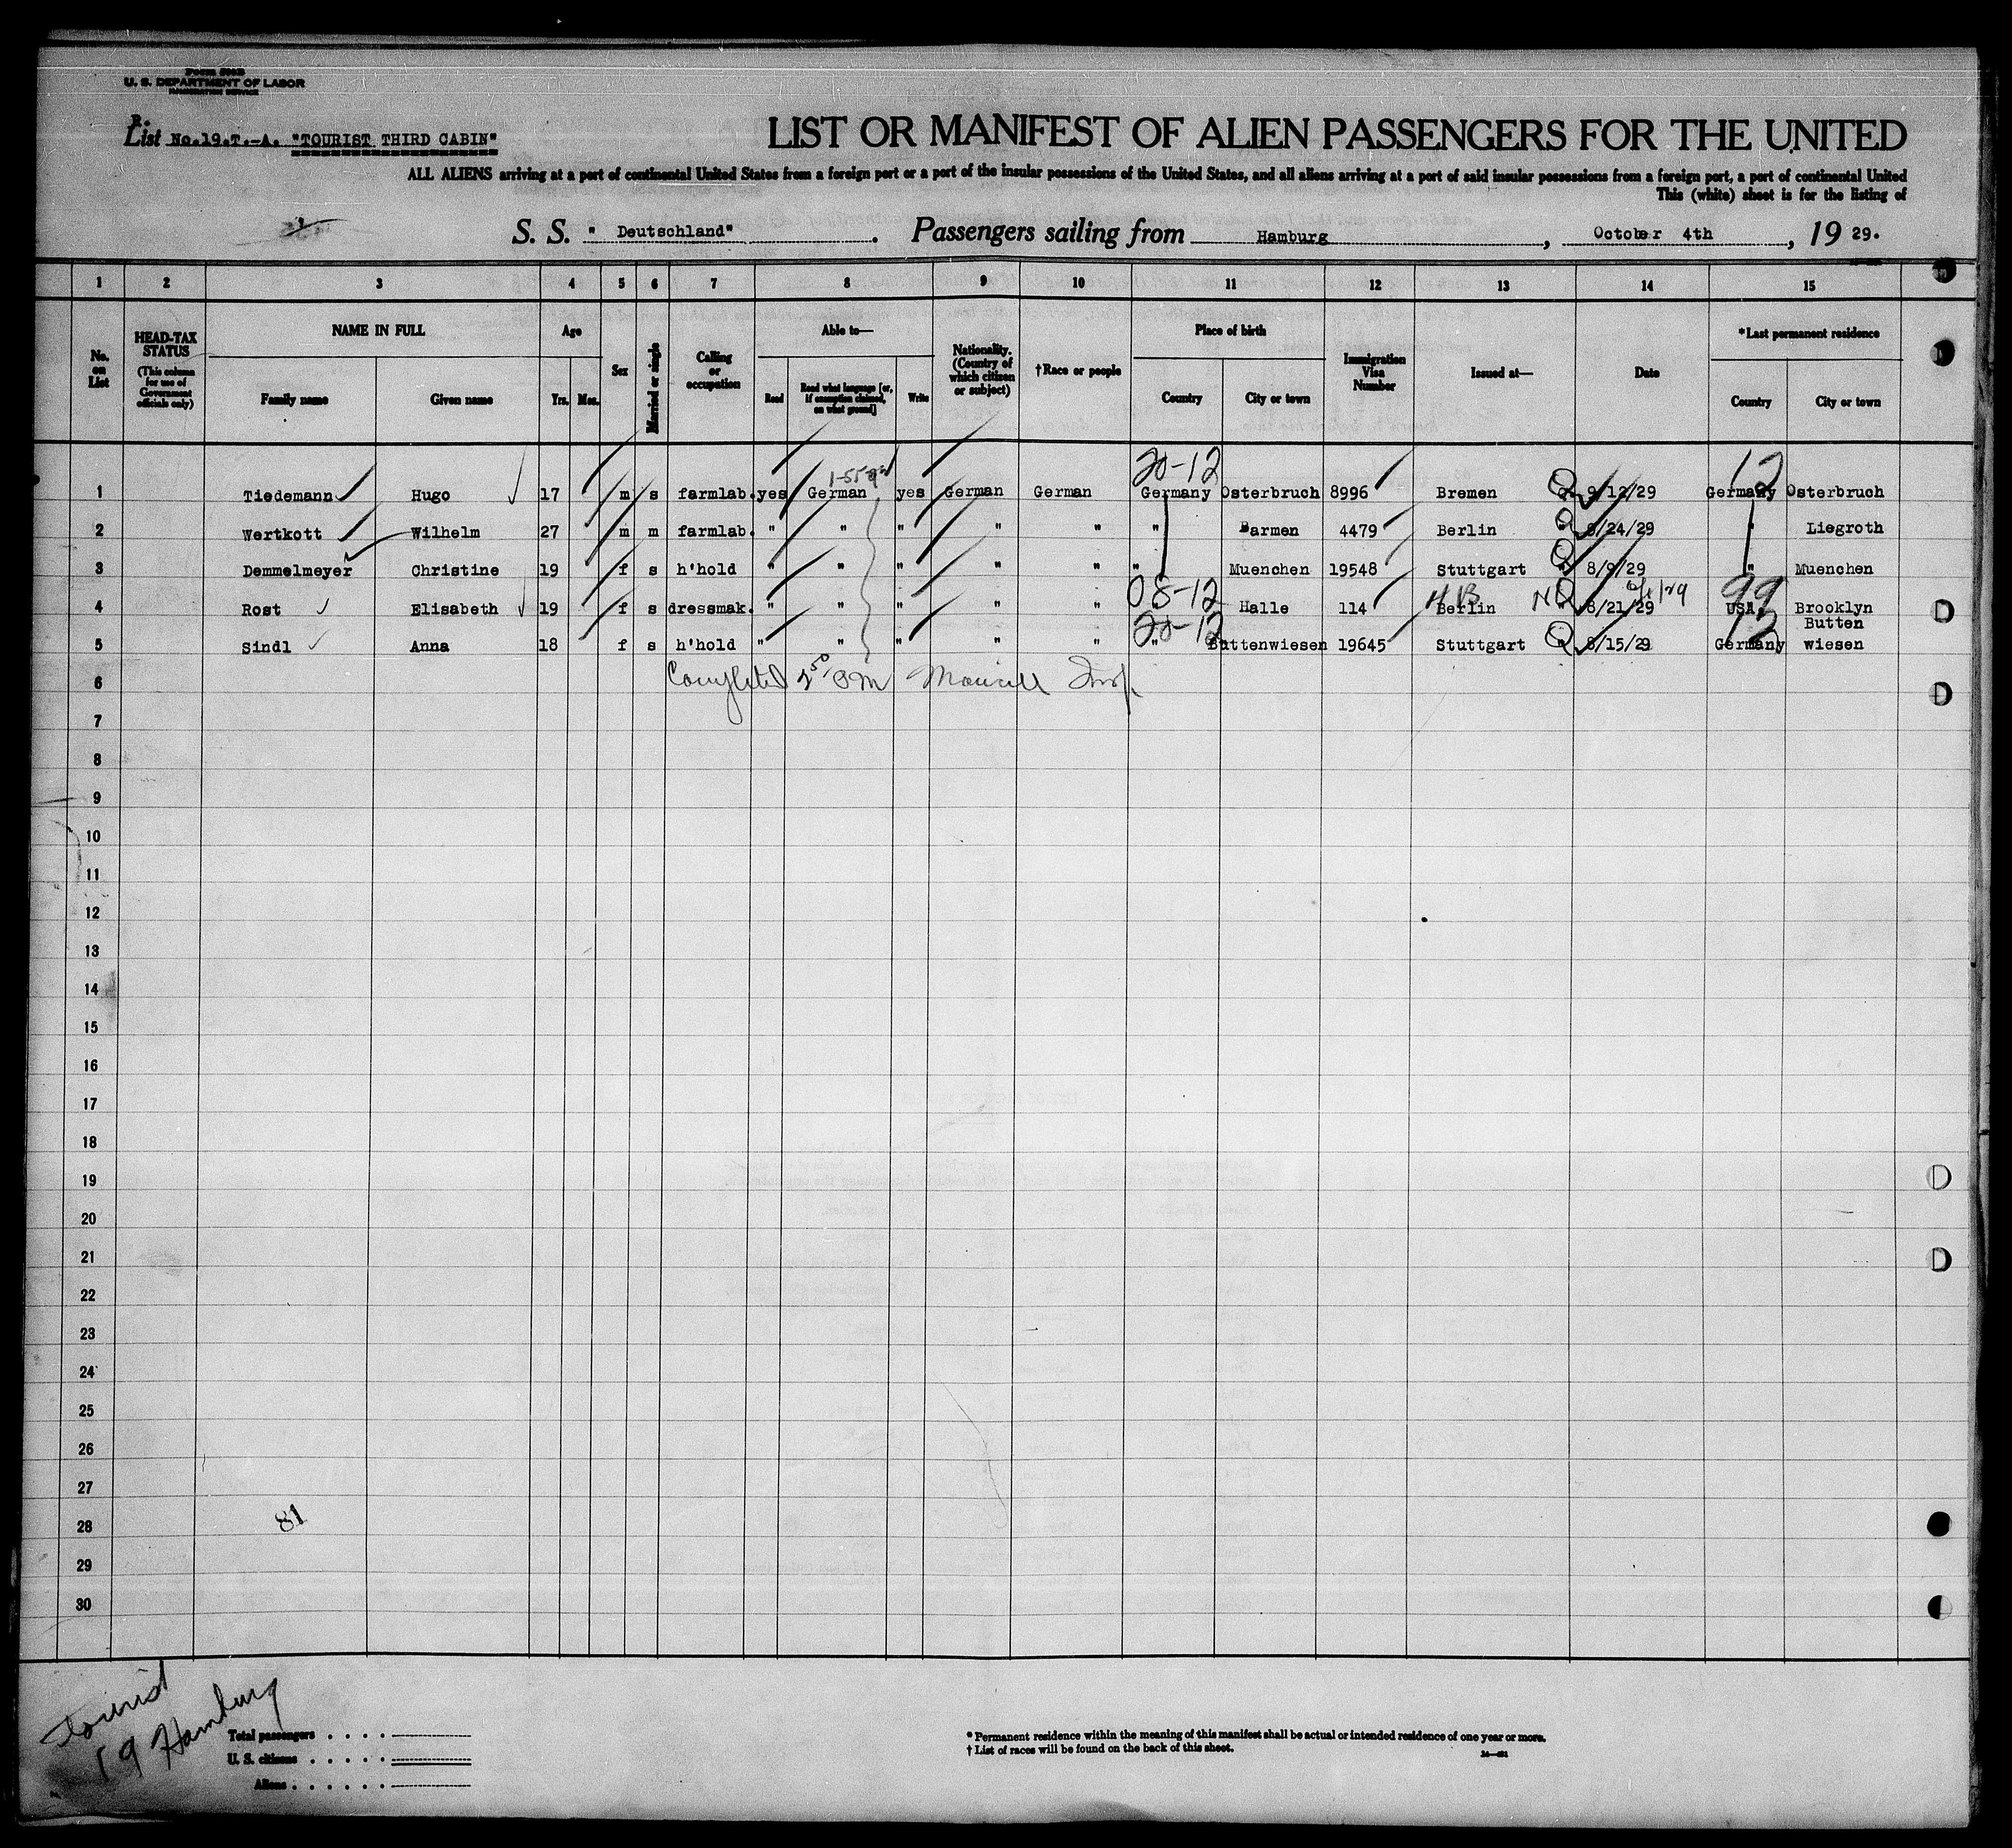 Form 500B
U. S. DEPARTMENT OF LABOR
IMMIGRATION SERVICE
R.
List No.19.T.-A. "TOURIST THIRD CABIN"
LIST OR MANIFEST OF ALIEN PASSENGERS FOR THE UNITED
ALL ALIENS arriving at a port of continental United States from a foreign port or a port of the insular possessions of the United States, and all aliens arriving at a port of said insular possessions from a foreign port, a port of continental United
This (white) sheet is for the listing of
S. S. " Deutschland" . Passengers sailing from Hamburg , October 4th , 19 29.
1 2 3 4 5 6 7 8 9 10 11 12 13 14 15
No. on List
HEAD-TAX STATUS (This column for use of Government officials only)
NAME IN FULL
Family name Given name
Age
Yrs. Mos.
Sex
Married or single
Calling or occupation
Able to—
Read Read what language [or, if exemption claimed, on what ground] Write
Nationality. (Country of which citizen or subject)
†Race or people
Place of birth
Country City or town
Immigration Visa Number
Issued at—
Date
*Last permanent residence
Country City or town
20-12 12
1 Tiedemann Hugo 17 m s farmlab. yes German yes German German Germany Osterbruch 8996 Bremen Q 9/12/29 Germany Osterbruch
2 Wertkott Wilhelm 27 m m farmlab. " " " " " " Barmen 4479 Berlin Q 8/24/29 " Liegroth
3 Demmelmeyer Christine 19 f s h'hold " " " " " " Muenchen 19548 Stuttgart Q 8/9/29 " Muenchen
08-12 99
4 Rost Elisabeth 19 f s dressmak. " " " " " " Halle 114 Berlin NQ 8/21/29 USA. Brooklyn
20-12 12
5 Sindl Anna 18 f s h'hold " " " " " " Buttenwiesen 19645 Stuttgart Q 8/15/29 Germany Butten wiesen
6 Completed 2 50 PM Insp.
7
8
9
10
11
12
13
14
15
16
17
18
19
20
21
22
23
24
25
26
27
28 81
29
30
Tourist
19 Hamburg
Total passengers . . . .
U. S. citizens . . . . .
Aliens . . . . . .
* Permanent residence within the meaning of this manifest shall be actual or intended residence of one year or more.
† List of races will be found on the back of this sheet.